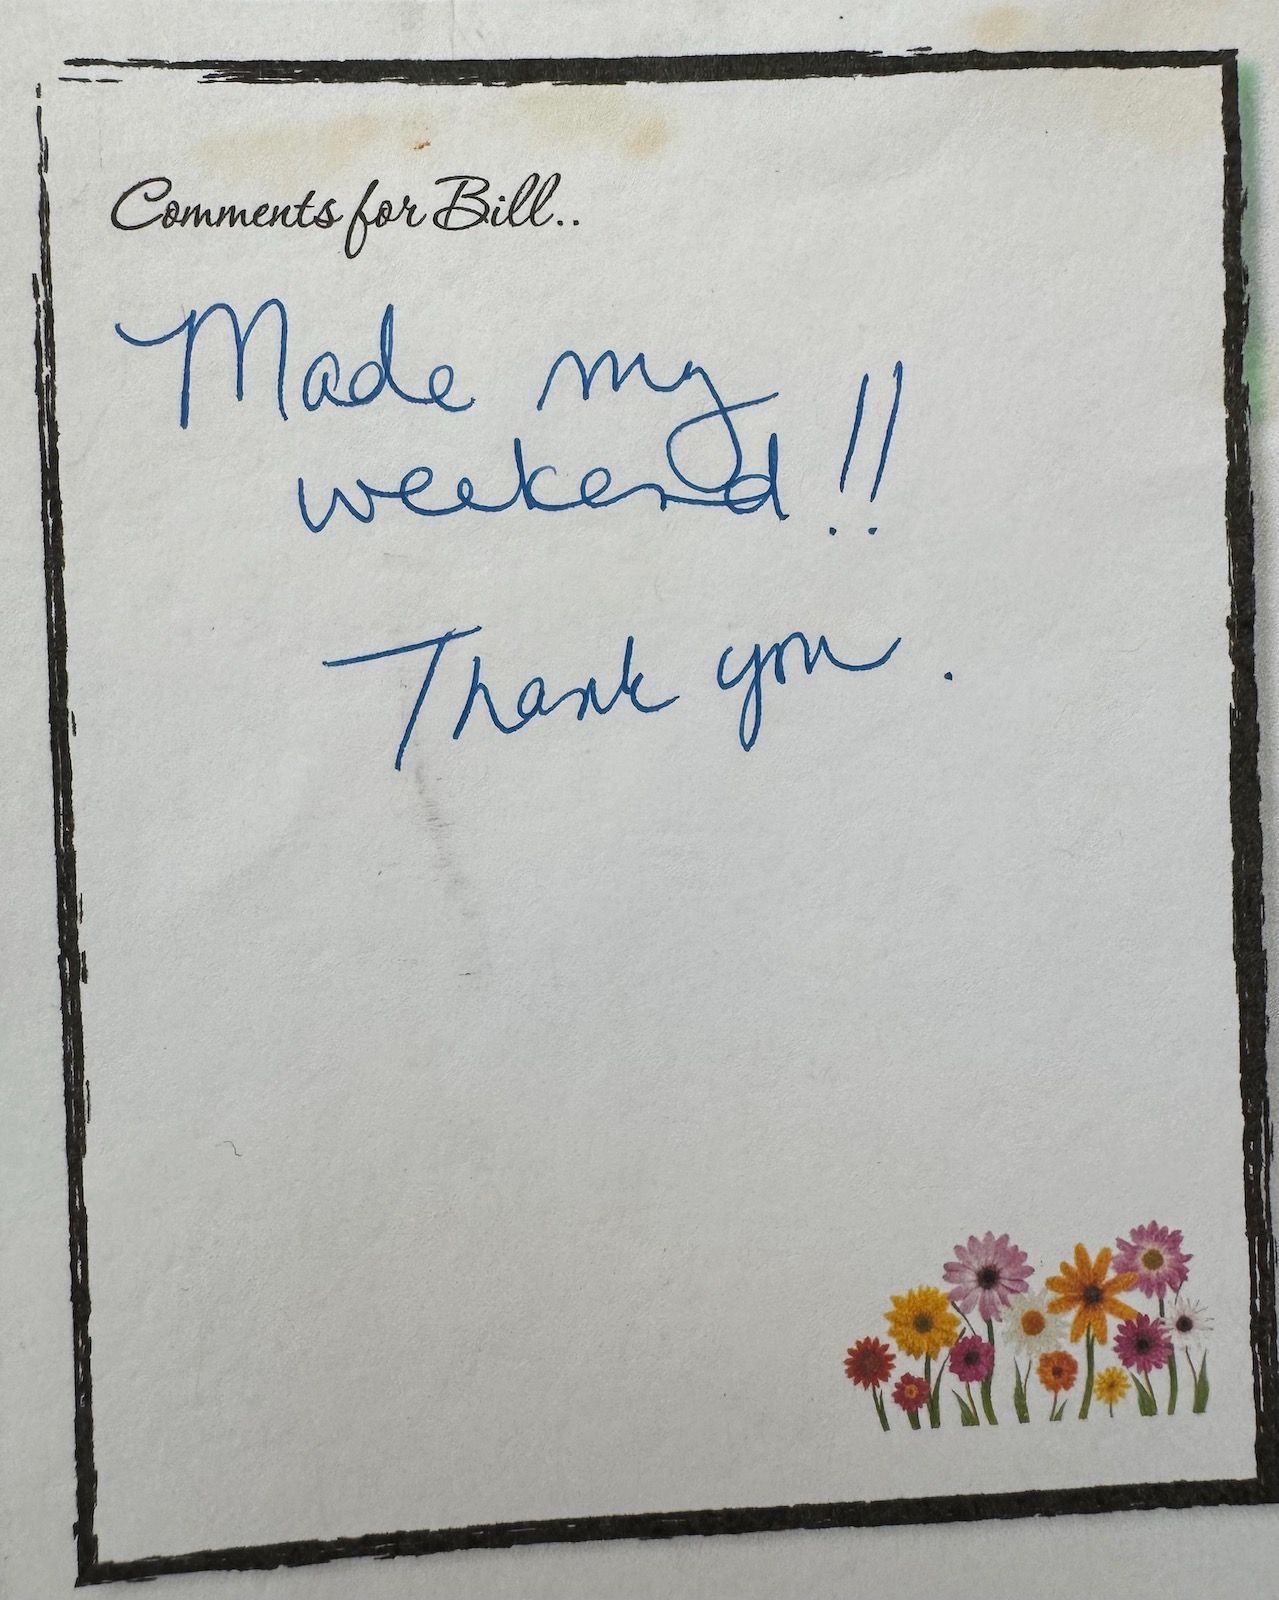 Comments for Bill..
Made my
weekend!!
Thank you.